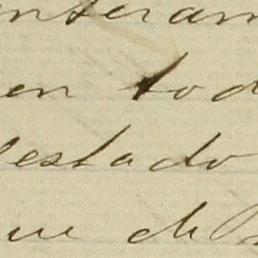 interam
en tod
estado
ue di